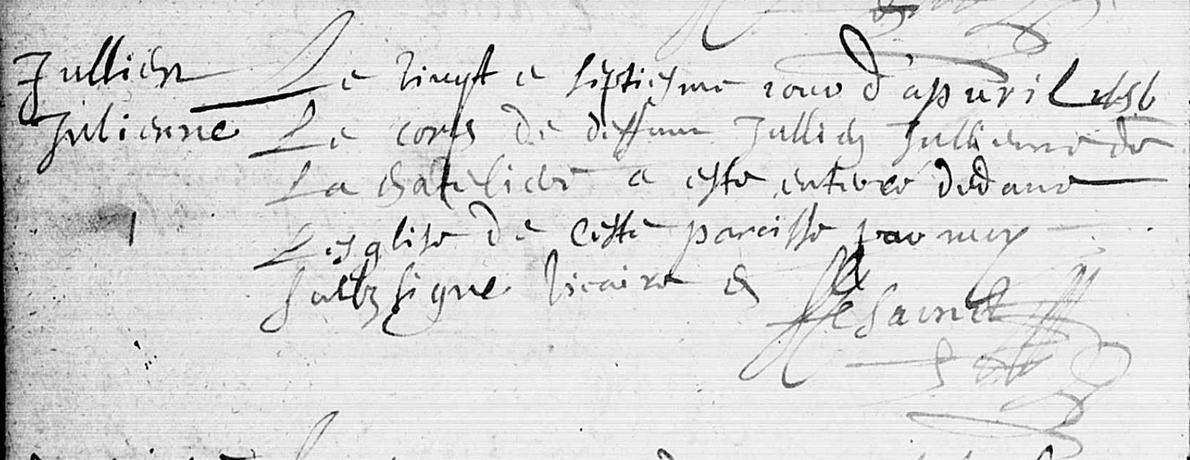 Jullien
Julienne
Le vingt e septiesme iour d'apuril 1656
Le corps de deffunt Jullien Jullienne de
La chateliere a este enterré dedans
L'esglise de ceste paroisse par moy
soubz signé vicaire &